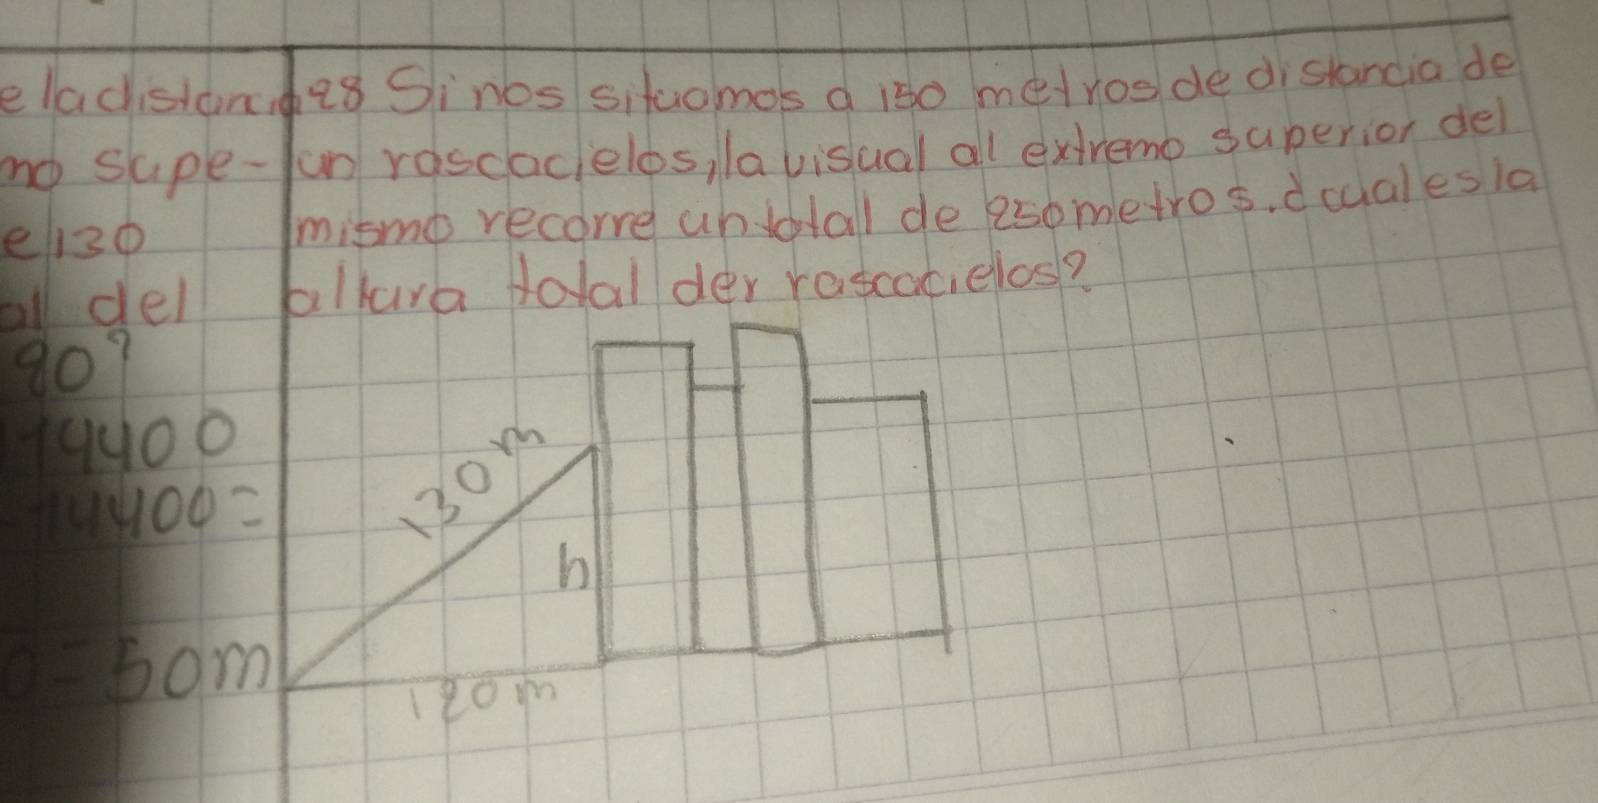 e la distancia
no supe-
e 130
al del
90?
14400
14400=
0=50m
28 Si nos situamos a 150 metros de distancia de
un rascacielos, la visual al extremo superior del
mismo recorre un total de 250 metros. d cual es la
altura total der rascacielos?
130 m
h
120 m